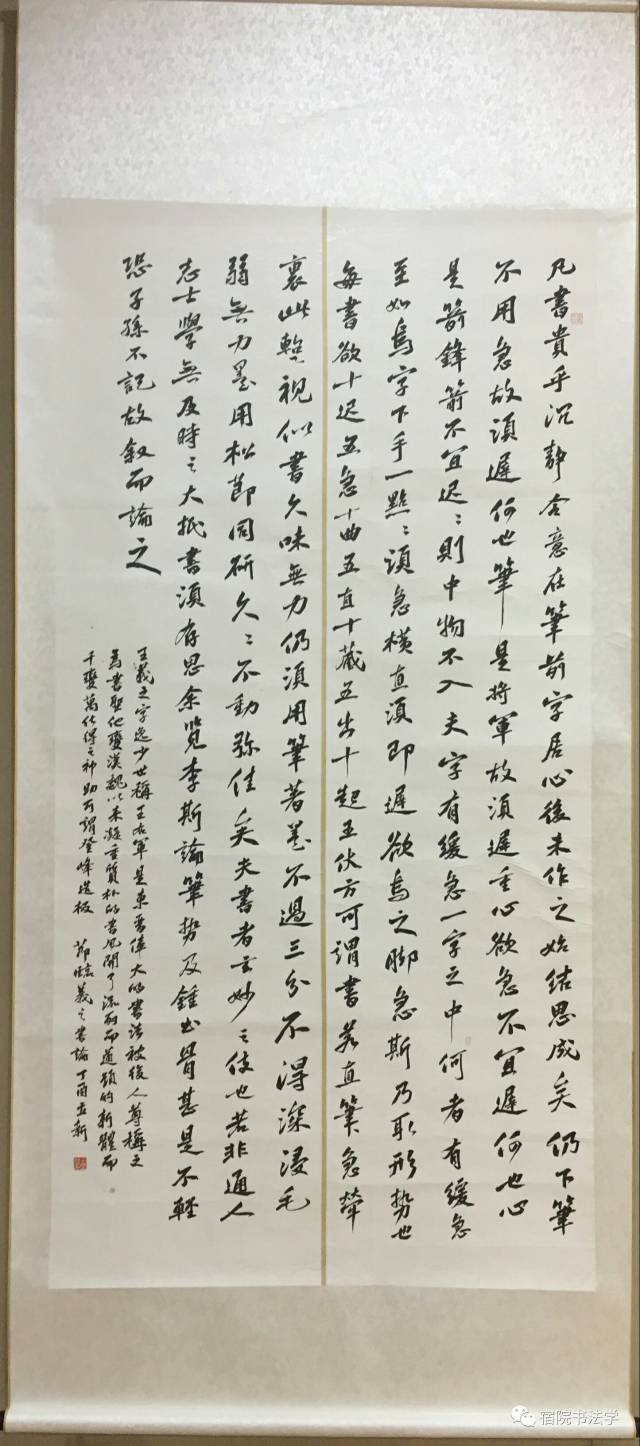 凡書貴乎沉靜令意在筆前字居心後未作之始結思成矣仍下筆
不用急故須遲何也筆是將軍故須遲重心欲急不宜遲何也心
是箭鋒箭不宜迟〻則中物不入夫字有緩急一字之中何者有緩急
至如烏字下手一點〻須急橫直須即遲欲烏之脚急斯乃取形勢也
每書欲十迟五急十曲五直十藏五出十起五伏方可謂書若直筆急牽
裹此暫視似書久味無力仍須用筆著墨不過三分不得深浸毛
弱無力墨用松節同研久〻不動弥佳矣夫書者玄妙之伎也若非通人
志士學無及時之大抵書須存思余覽李斯論筆勢及鍾書骨甚是不輕
恐子孫不記故敘而論之
王羲之字逸少世稱王右軍是東晋偉大的書法被後人尊稱之
為書聖他變漢魏以來凝重質朴的書風開了流而遒的新體而
千變萬化得之神助可謂登峰造極 節臨羲之書論丁酉孟新
宿院书法学